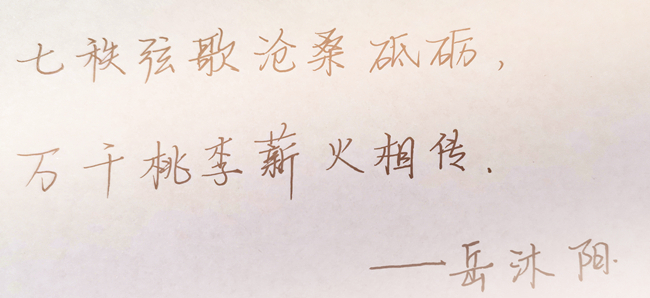 七秩弦歌沧桑砥砺,
万千桃李薪火相传.
——岳沐阳.